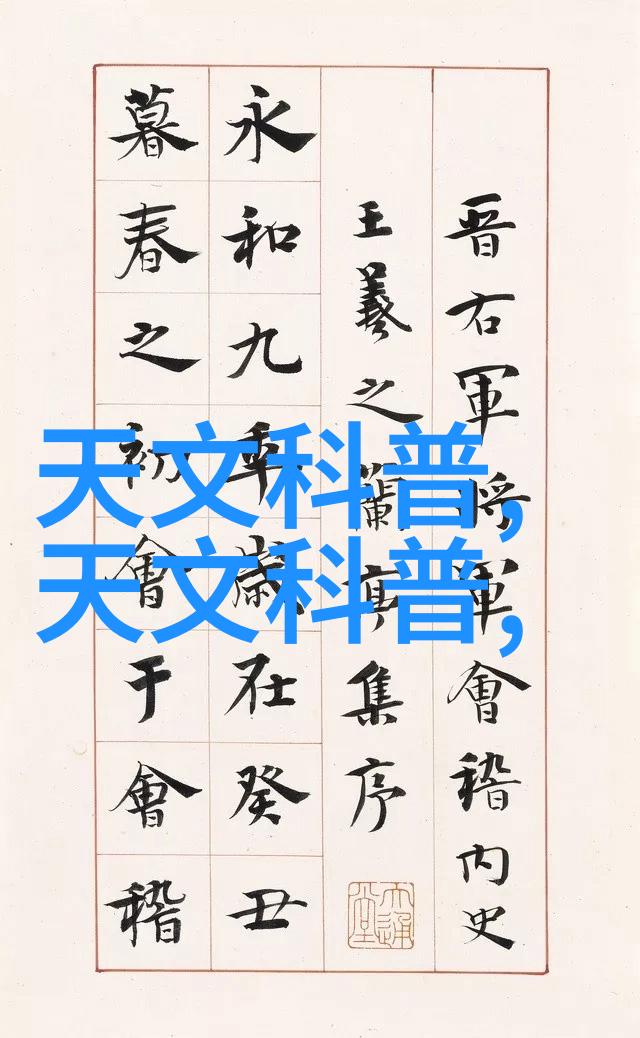 晋右軍将軍會稽内史
王羲之蘭亭集序
永和九年歲在癸丑
暮春之初會于會稽
天文科普,
天文科普,